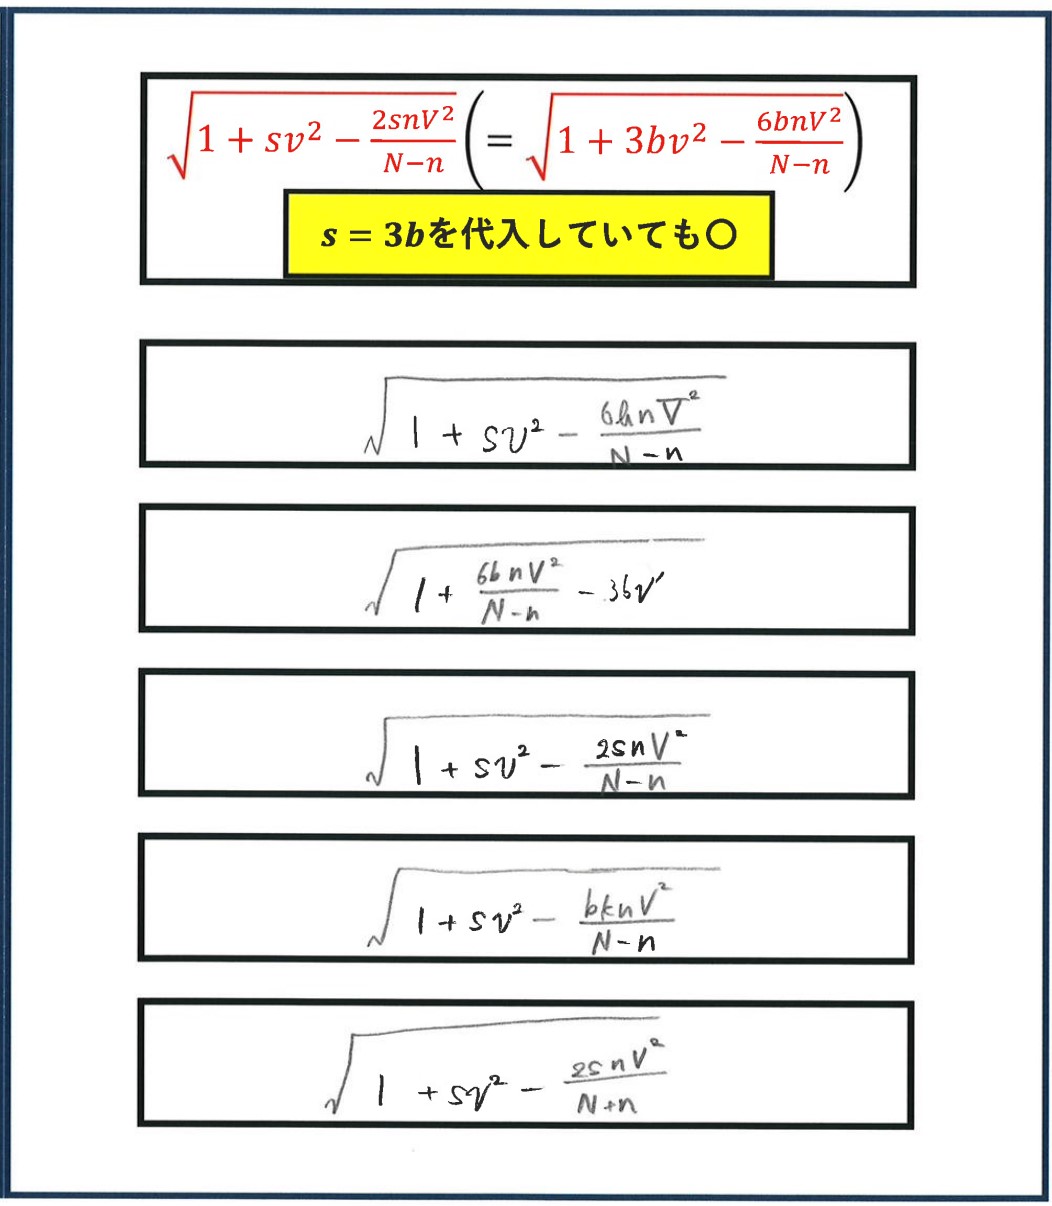 √(1 + sv² − 2snV²/(N−n)) (= √(1 + 3bv² − 6bnV²/(N−n)))
s = 3bを代入していても〇
√(1 + sv² − 6hnV²/(N−n))
√(1 + 6bnV²/(N−n) − 3bv′)
√(1 + sv² − 2snV²/(N−n))
√(1 + sv² − bknV²/(N−n))
√(1 + sv² − 2snV²/(N+n))